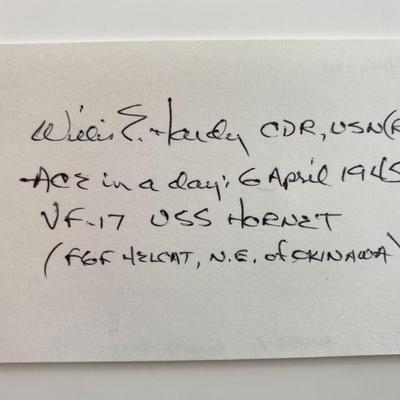 Willis E. Hardy CDR, USN(R
-ACE in a day; 6 April 1945
VF-17 USS HORNET
(F6F HELCAT, N.E. of OKINAWA)